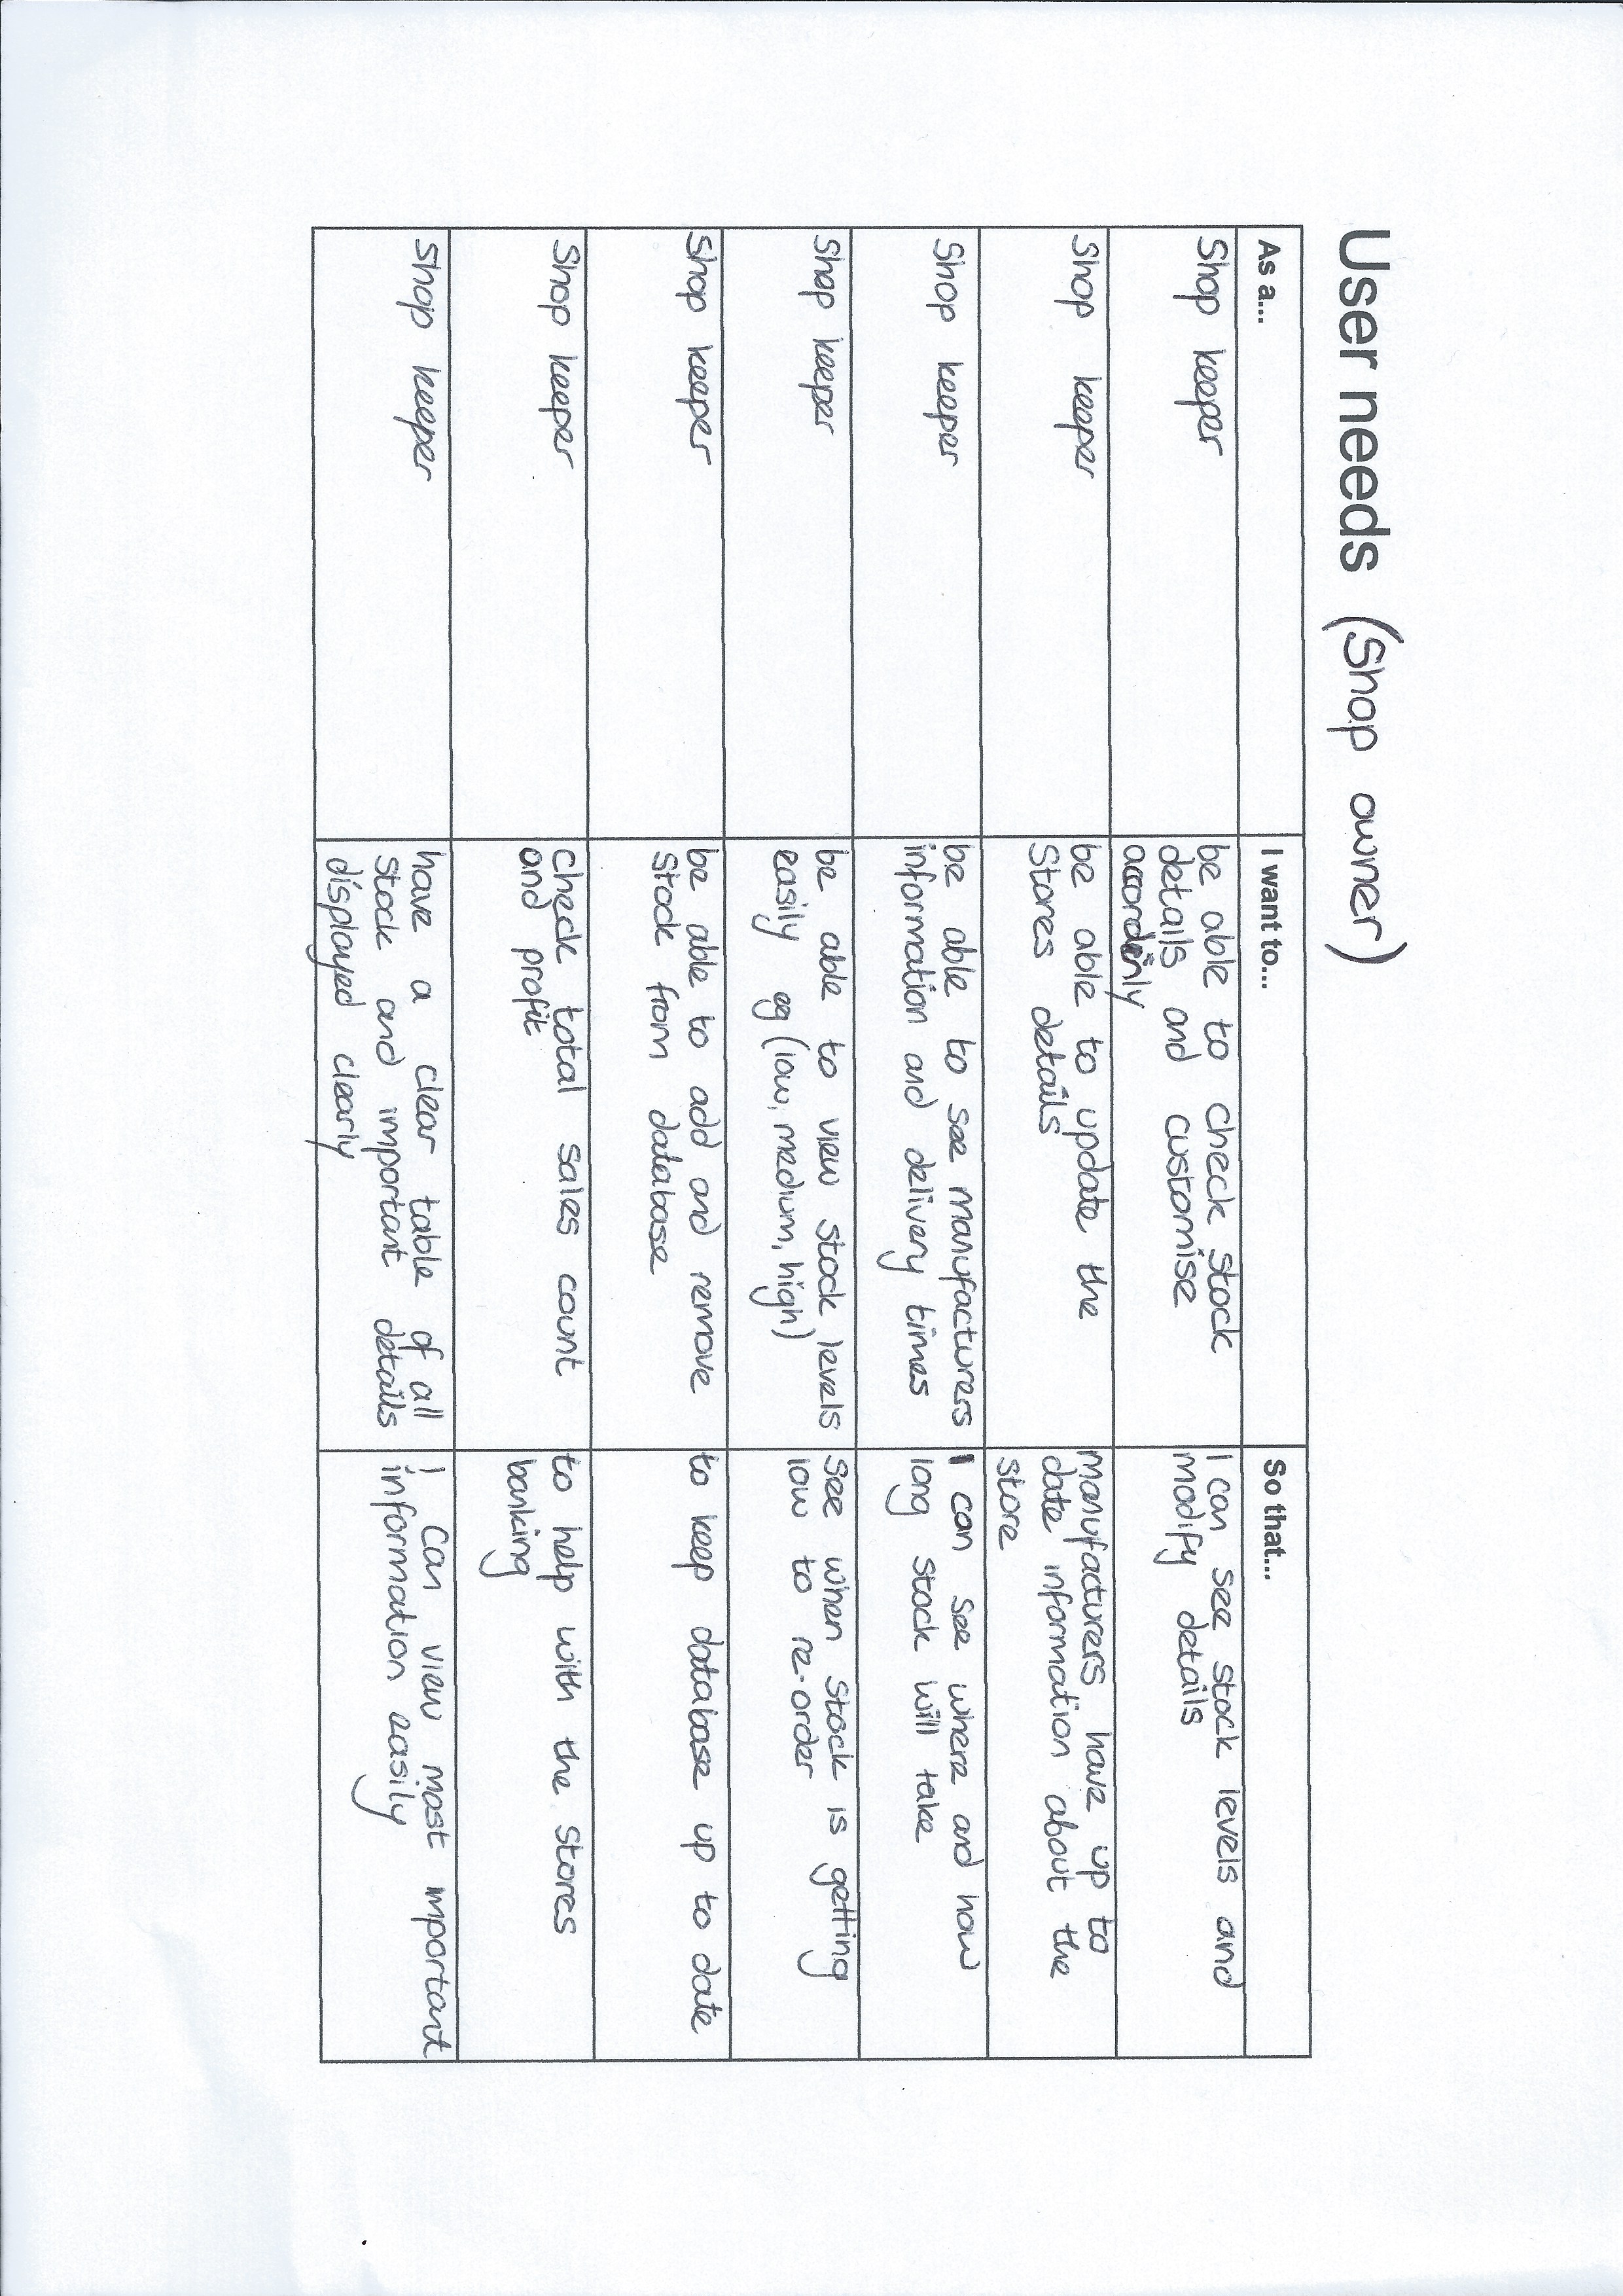 User needs (Shop owner)
As a... I want to... So that...
Shop keeper
be able to check stock
details and customise
accordinly
I can see stock levels and
modify details
Shop keeper
be able to update the
Stores details
manufacturers have up to
date information about the
store
Shop keeper
be able to see manufacturers
information and delivery times
I can see where and how
long stock will take
Shop keeper
be able to view stock levels
easily eg (low, medium, high)
See when stock is getting
low to re-order
Shop keeper
be able to add and remove
Stock from database
to keep database up to date
Shop keeper
Check total sales count
and profit
to help with the stores
banking
Shop keeper
have a clear table of all
stock and important details
displayed clearly
I can view most important
information easily